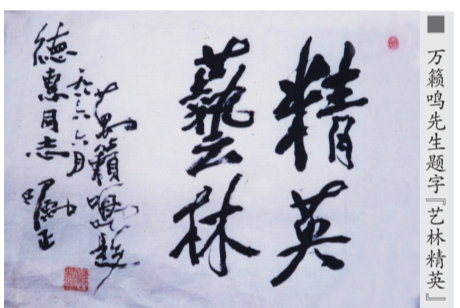 万籁鸣先生题字『艺林精英』
精英
藝林
萬籟鳴題
一九八六六月
德惠同志